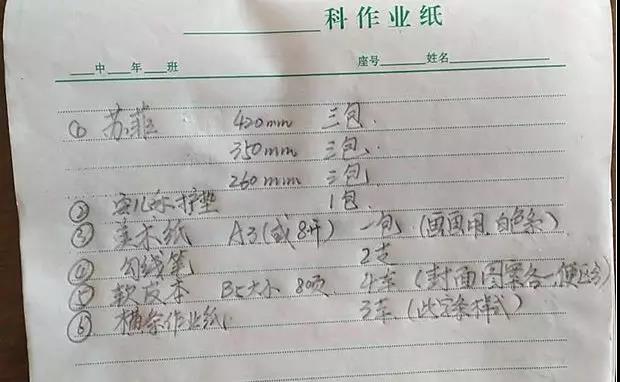 科作业纸
中 年 班 座号 姓名
① 苏菲 420mm 三包.
350mm 三包.
260mm 三包
② 护垫 1包.
③ 美术纸 A3(或8开) 一包 (画画用,白色)
④ 勾线笔 2支
⑤ 软皮本 B5大小 80页 4本 (封面图案各一,便区分)
⑥ 横条作业纸 3本 (此字条样式)